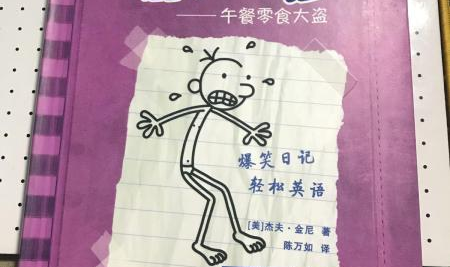 ——午餐零食大盗
爆笑日记
轻松英语
[美]杰夫·金尼 著
陈万如 译